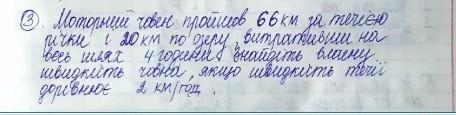 ③. Моторний човен пройшов 66 км за течією
річки і 20 км по озеру, витративши на
весь шлях 4 години. Знайдіть власну
швидкість човна, якщо швидкість течії
дорівнює 2 км/год.